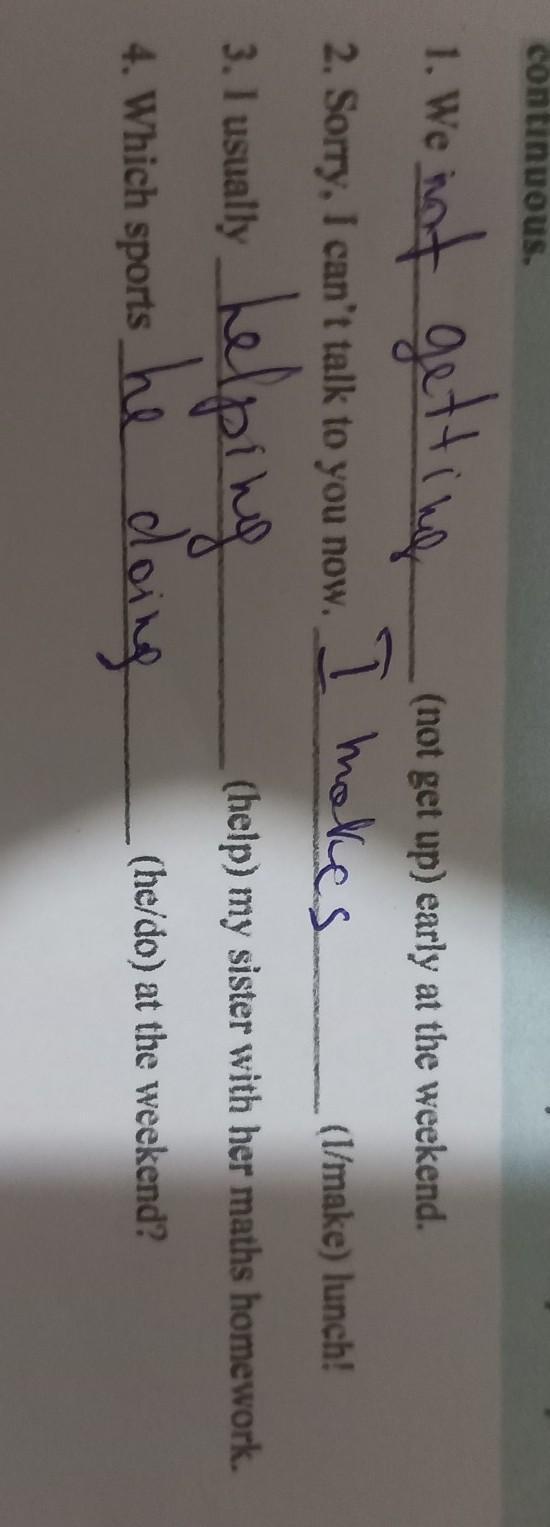 continuous.
1. We not getting (not get up) early at the weekend.
2. Sorry, I can't talk to you now. I makes (I/make) lunch!
3. I usually helping (help) my sister with her maths homework.
4. Which sports he doing (he/do) at the weekend?